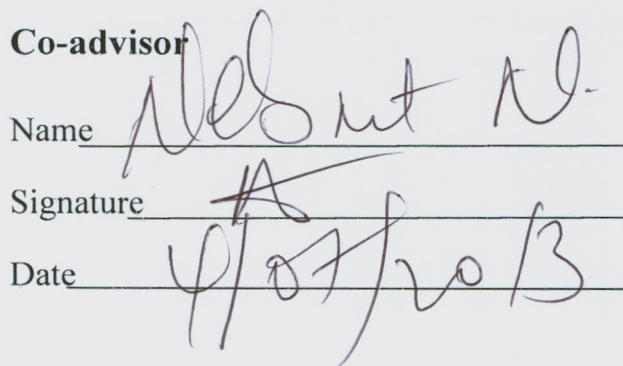 Co-advisor
Name Nebut N.
Signature
Date 4/07/2013